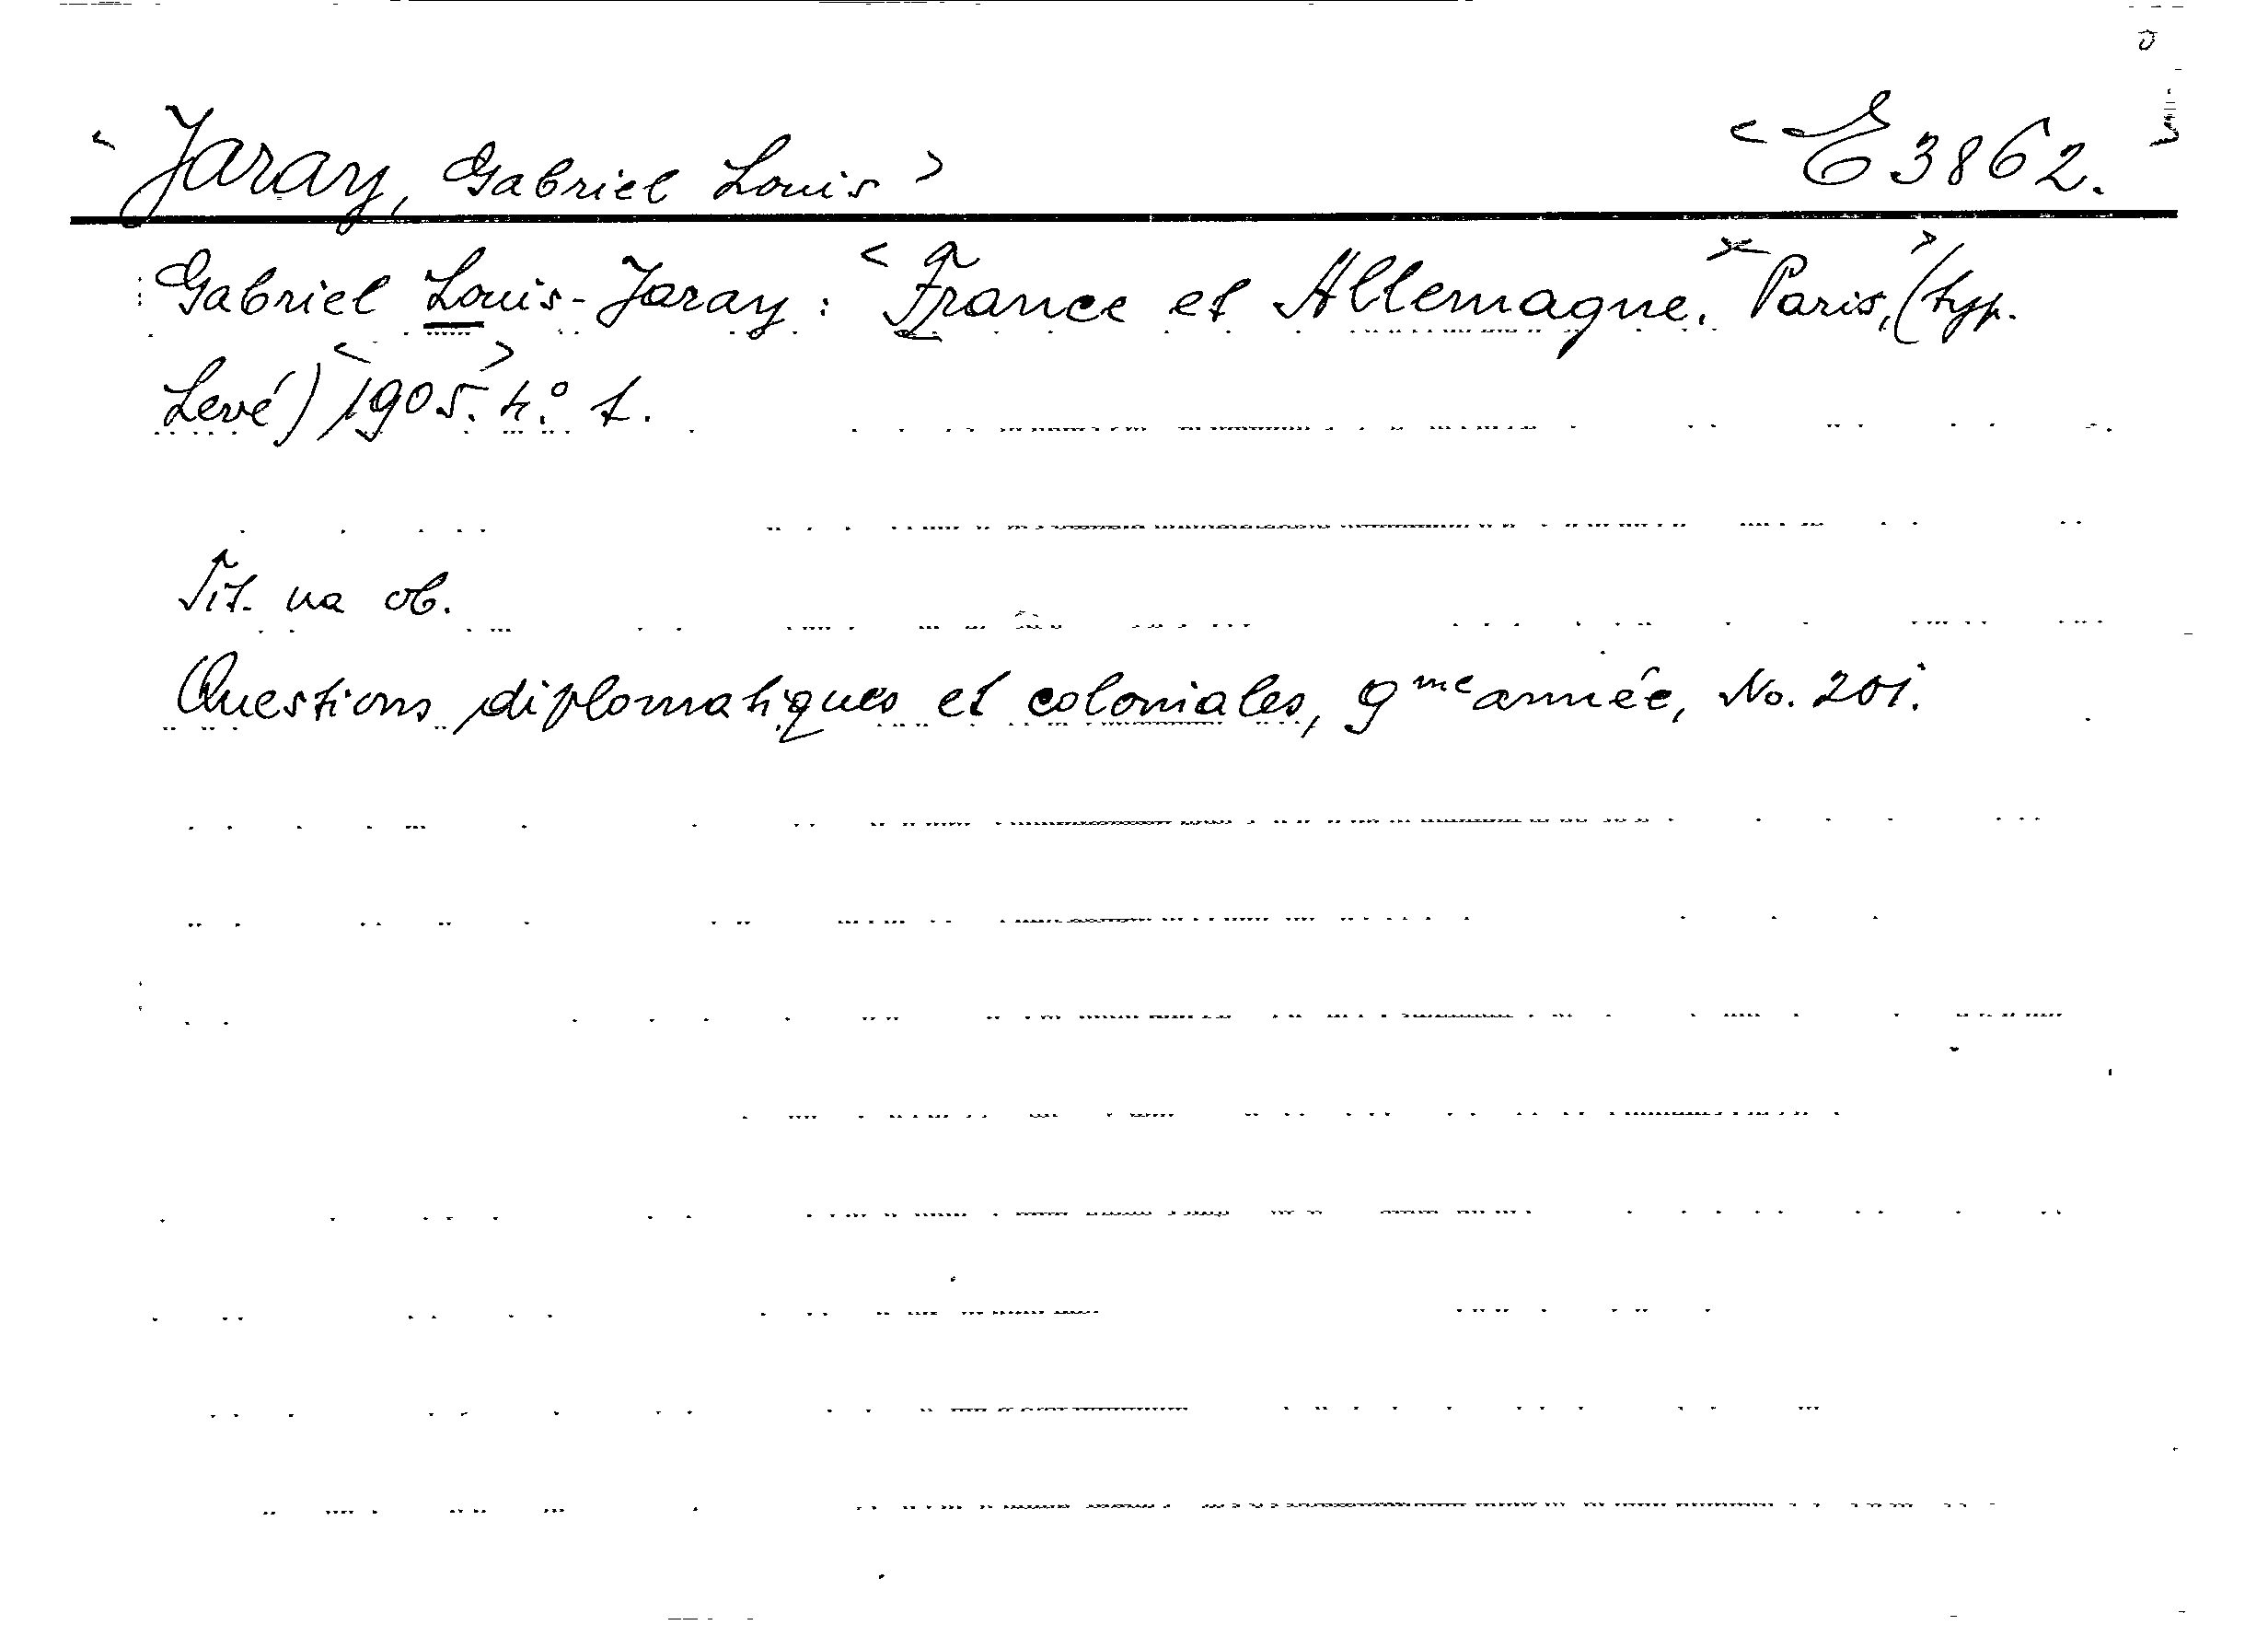 < Jaray, Gabriel Louis > < E 3862. >
Gabriel Louis-Jaray: < France et Allemagne. > Paris, > (typ.
Levé) < 1905. > 4.° 1.
Tit. na ob.
Questions diplomatiques et coloniales, 9me année, No. 201.